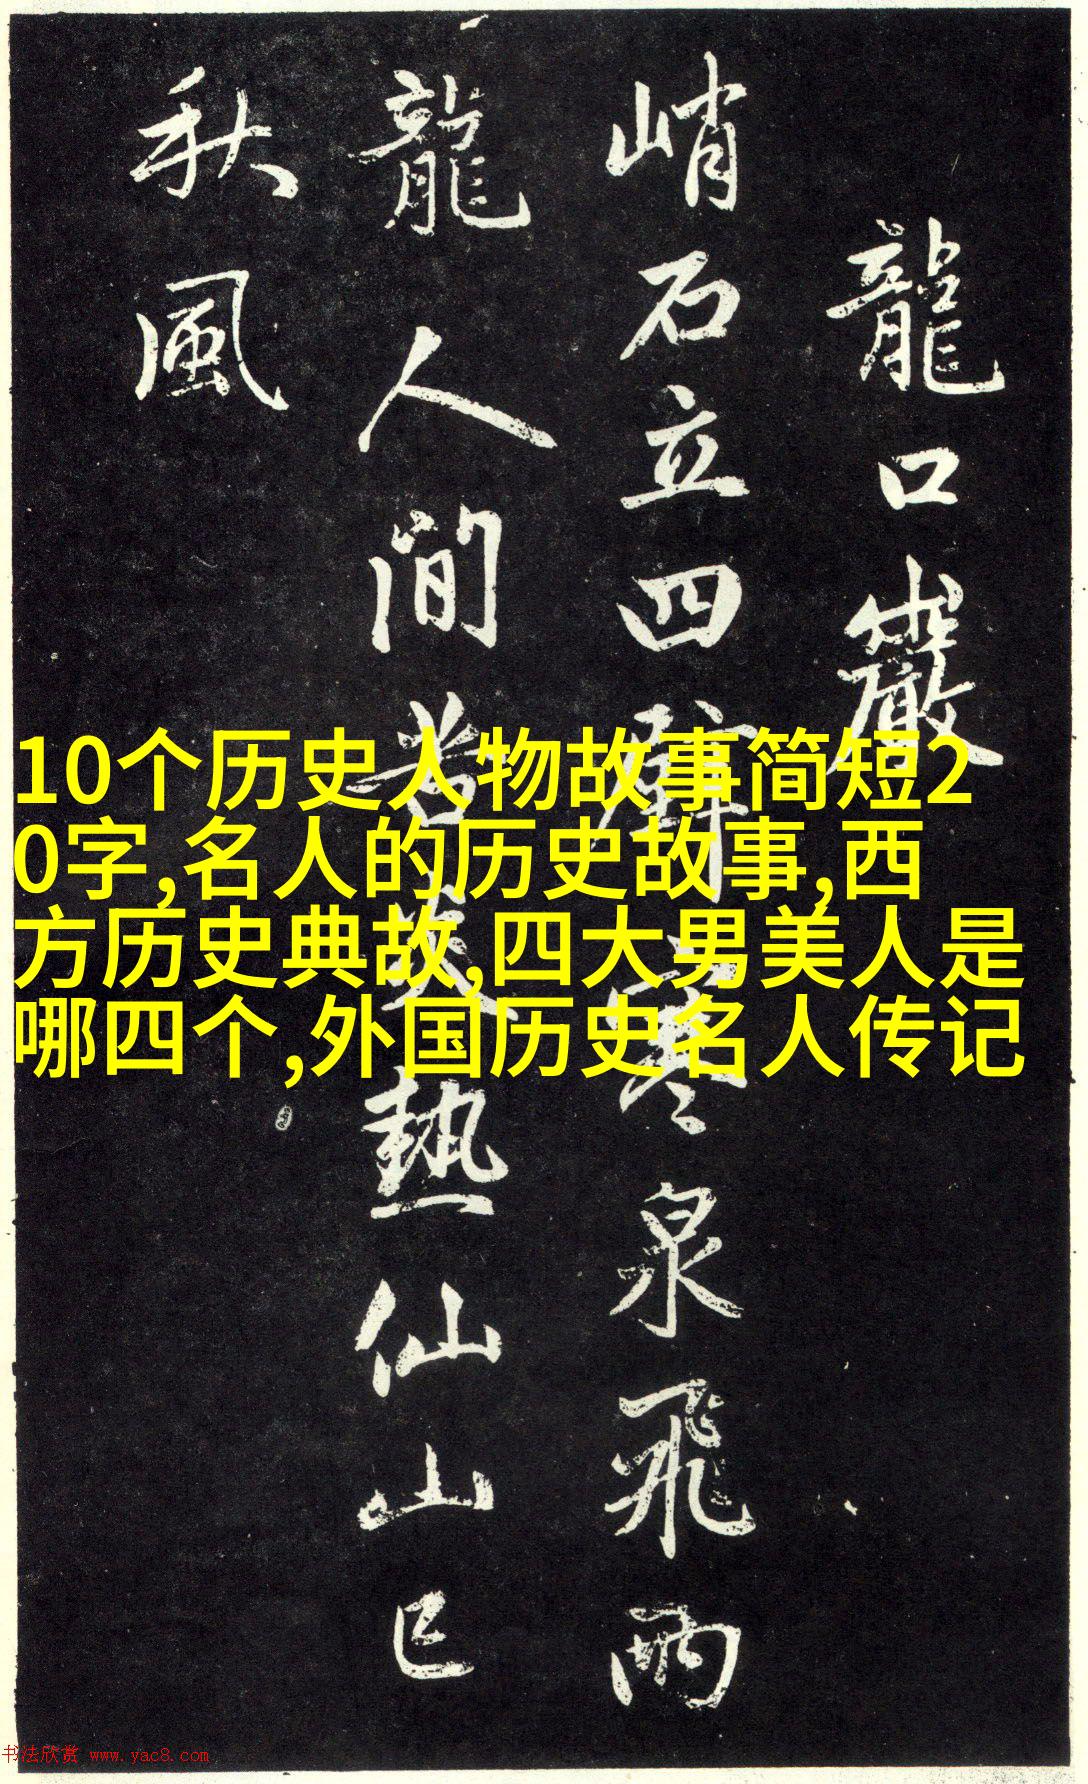 龍口巖
峭石立四壁寒泉飛兩
龍人間苦炎熱仙山已
秋風
10个历史人物故事简短2
0字,名人的历史故事,西
方历史典故,四大男美人是
哪四个,外国历史名人传记
书法欣赏 www.yac8.com